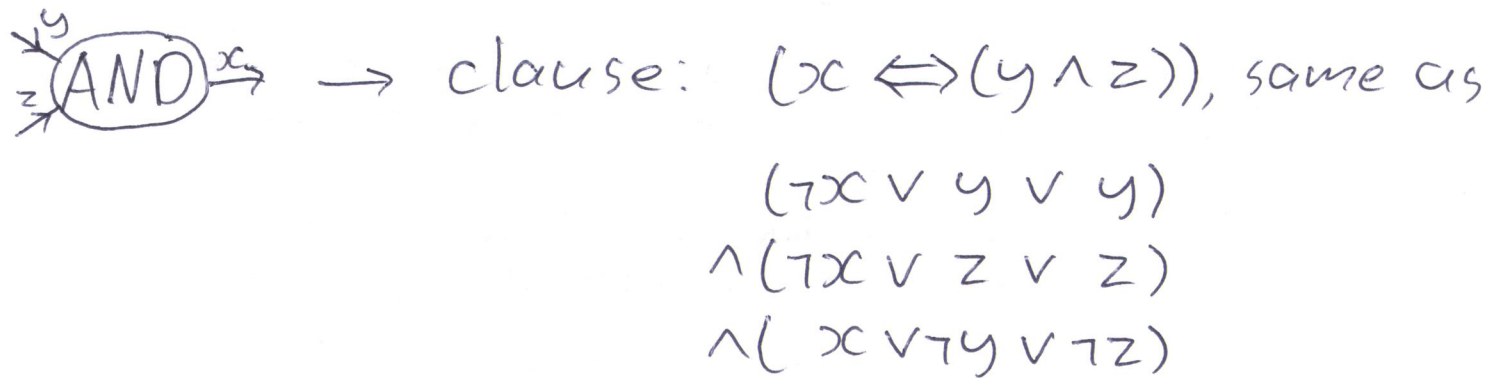 y
z AND x → clause: (x ⇔ (y ∧ z)), same as
(¬x ∨ y ∨ y)
∧(¬x ∨ z ∨ z)
∧( x ∨ ¬y ∨ ¬z)